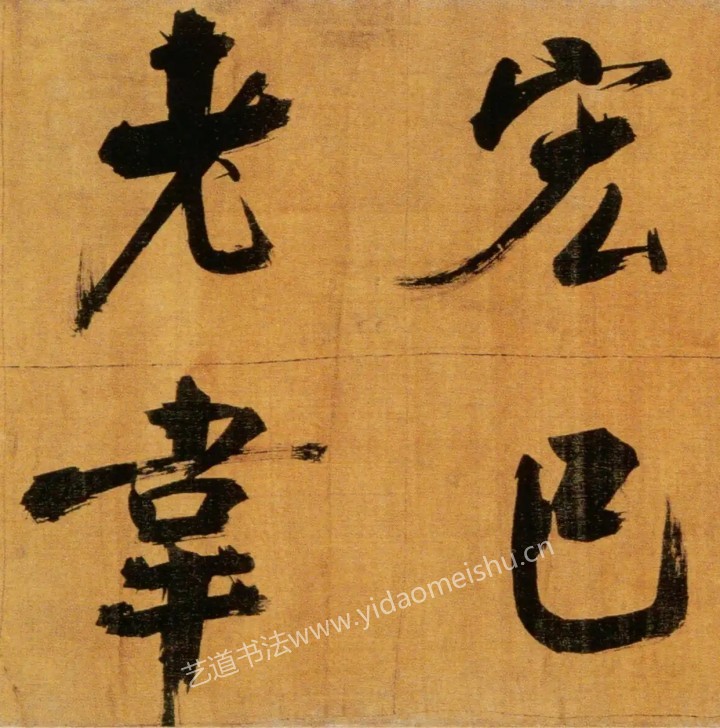 宏已
老韋
艺道书法www.yidaomeishu.cn